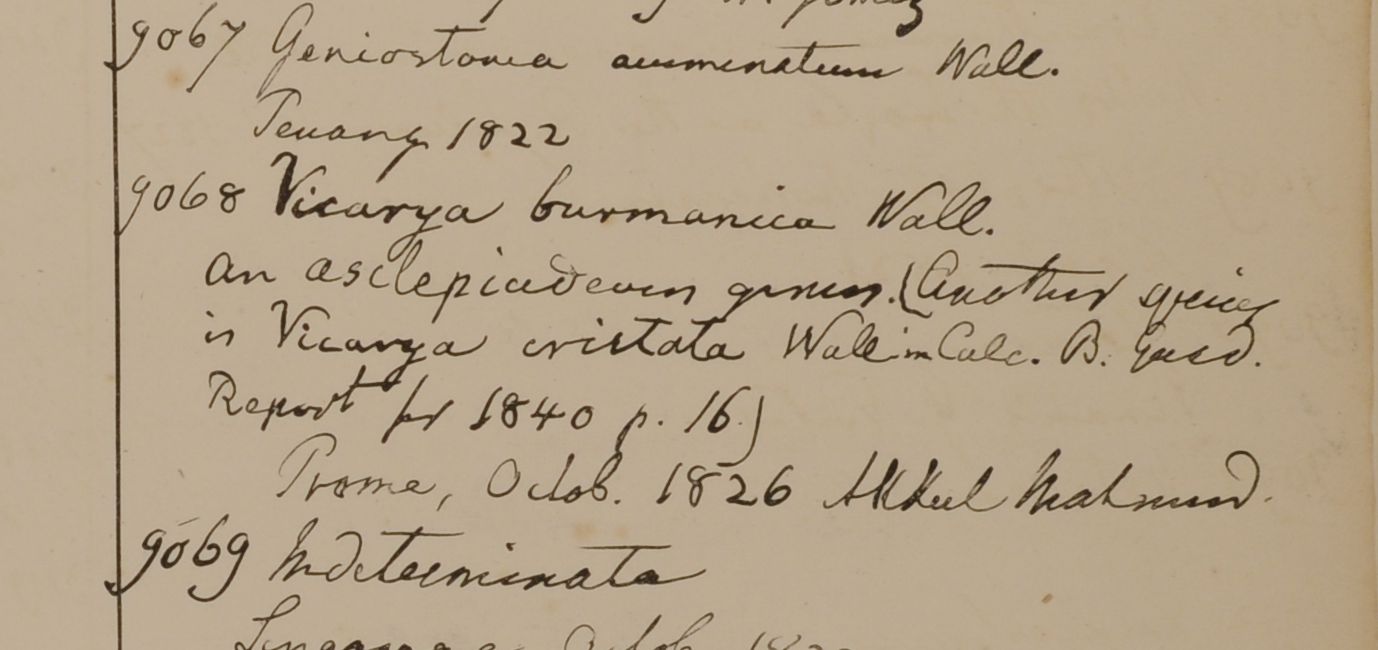 9067 Geniostoma acuminatum Wall.
Penang 1822
9068 Vicarya burmanica Wall.
an asclepiadeous genus. (Another species
is Vicarya cristata Wall in Calc. B. Gard.
Report for 1840 p. 16.)
Prome, Octob. 1826 Mahmud.
9069 Indeterminata
Octob.